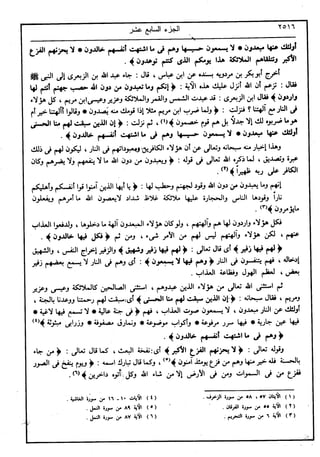 ٢٥١٦ الجزء السابع عشر
أولئك عنها مبعدون * لا يسمعون حسيسها وهم فى ما اشتهت أنفسهم خالدون * لا يحزنهم الفزع
الأكبر وتتلقاهم الملائكة هذا يومكم الذى كنتم توعدون ﴾ .
أخرج أبو بكر بن مردويه بسنده عن ابن عباس ، قال : جاء عبد الله بن الزبعرى إلى النبى ﷺ
فقال : تزعم أن الله أنزل عليك هذه الآية : ﴿ إنكم وما تعبدون من دون الله حصب جهنم أنتم لها
واردون ﴾ فقال ابن الزبعرى : قد عبدت الشمس والقمر والملائكة وعزير وعيسى ابن مريم ، كل هؤلاء
فى النار مع آلهتنا ؟ فنزلت : ﴿ ولما ضرب ابن مريم مثلا إذا قومك منه يصدون * وقالوا أآلهتنا خير أم
هو ما ضربوه لك إلا جدلاً بل هم قوم خصمون ﴾(١) ، ثم نزلت : ﴿ إن الذين سبقت لهم منا الحسنى
أولئك عنها مبعدون * لا يسمعون حسيسها وهم فى ما اشتهت أنفسهم خالدون ﴾ .
وهذا إخبار منه سبحانه وتعالى عن أن هؤلاء الكافرين ومعبوداتهم فى النار ، ليكون لهم فى ذلك
عبرة وتصديق ، لما ذكره الله تعالى فى قوله : ﴿ ويعبدون من دون الله ما لا ينفعهم ولا يضرهم وكان
الكافر على ربه ظهيراً ﴾(٢) .
إنهم وما يعبدون من دون الله وقود لجهنم وحطب لها : ﴿ يا أيها الذين آمنوا قوا أنفسكم وأهليكم
ناراً وقودها الناس والحجارة عليها ملائكة غلاظ شداد لا يعصون الله ما أمرهم ويفعلون
ما يؤمرون ﴾(٣) .
فكل هؤلاء واردون لها هم وآلهتهم ، ولو كان هؤلاء المعبدون آلهة ما دخلوها ، ولدفعوا العذاب
عنهم ، لكن هؤلاء وآلهتهم ليس لهم من الأمر شىء ، ومن ثم ﴿ فكل فيها خالدون ﴾ .
﴿ لهم فيها زفير ﴾ أى قال تعالى : ﴿ لهم فيها زفير وشهيق ﴾ والزفير إخراج النفس ، والشهيق
إدخاله ، فهم يتنفسون فى النار ﴿ وهم فيها لا يسمعون ﴾ : أى وهم فى النار لا يسمع بعضهم زفير
بعض ، لعظم الهول وفظاعة العذاب .
ثم استثنى الله تعالى من هؤلاء الذين عبدوهم ، استثنى الصالحين كالملائكة وعيسى وعزير
ومريم ، فقال سبحانه : ﴿ إن الذين سبقت لهم منا الحسنى ﴾ أى سبقت لهم رحمتنا ووعدنا بالجنة ،
أولئك عن النار مبعدون ، لا يسمعون صوت العذاب ، فهم ﴿ فى جنة عالية * لا تسمع فيها لاغية *
فيها عين جارية * فيها سرر مرفوعة * وأكواب موضوعة * ونمارق مصفوفة * وزرابى مبثوثة ﴾(٤)
﴿ وهم فى ما اشتهت أنفسهم خالدون ﴾ .
وقوله تعالى : ﴿ لا يحزنهم الفزع الأكبر ﴾ أى : نفخة البعث ، كما قال تعالى : ﴿ من جاء
بالحسنة فله خير منها وهم من فزع يومئذ آمنون ﴾(٥) ، وكما قال تبارك اسمه : ﴿ ويوم ينفخ فى الصور
ففزع من فى السموات ومن فى الأرض إلا من شاء الله وكل أتوه داخرين ﴾(٦) .
(١) الآيتان ٥٧ ، ٥٨ من سورة الزخرف .
(٢) الآية ٥٥ من سورة الفرقان .
(٣) الآية ٦ من سورة التحريم .
(٤) الآيات ١٠ - ١٦ من سورة الغاشية .
(٥) الآية ٨٩ من سورة النمل .
(٦) الآية ٨٧ من سورة النمل .